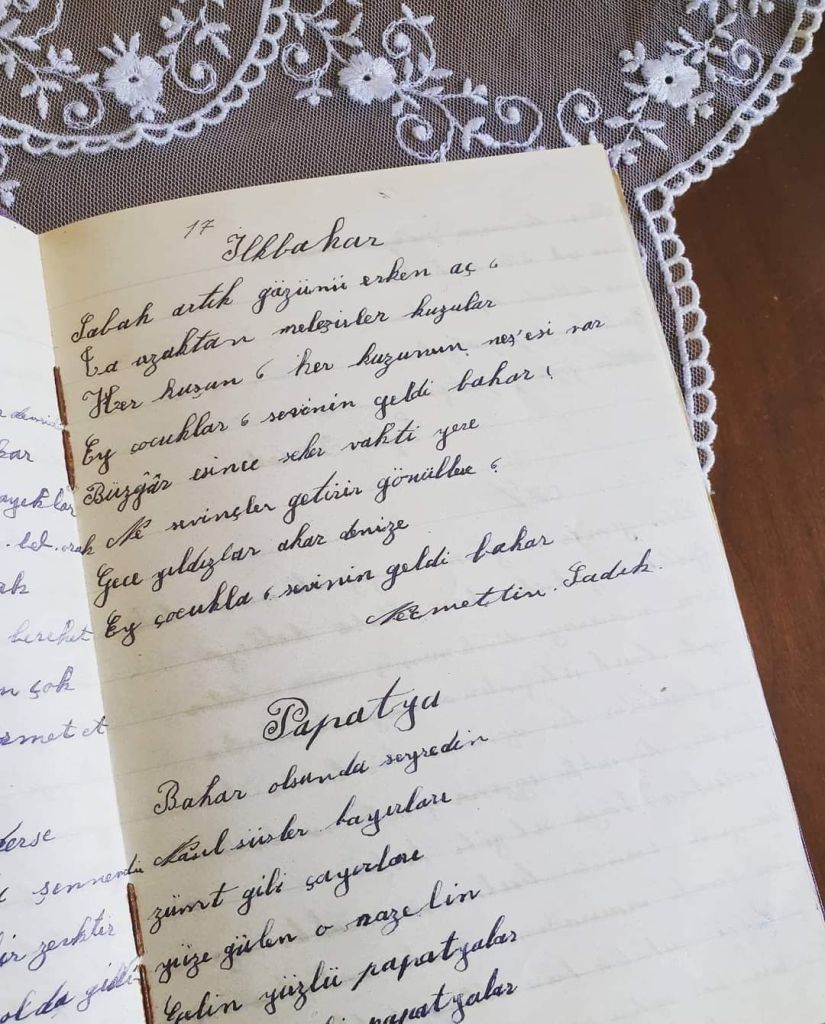 17
İlkbahar
Sabah artık gözünü erken aç,
Ta uzaktan meleşirler kuzular
Her kuşun, her kuzunun neş'esi var
Ey çocuklar, sevinin geldi bahar!
Rüzgâr esince seher vakti yere
Ne sevinçler getirir gönüllere,
Gece yıldızlar akar denize
Ey çocukla, sevinin geldi bahar
Necmettin. Sadık.
Papatya
Bahar olsunda seyredin
Nasıl süsler bayırları
zümrt gibi çayırları
yüze gülen o nazelin
Gelin yüzlü papatyalar
papatyalar
bereket
n çok
şennendi
zevktir